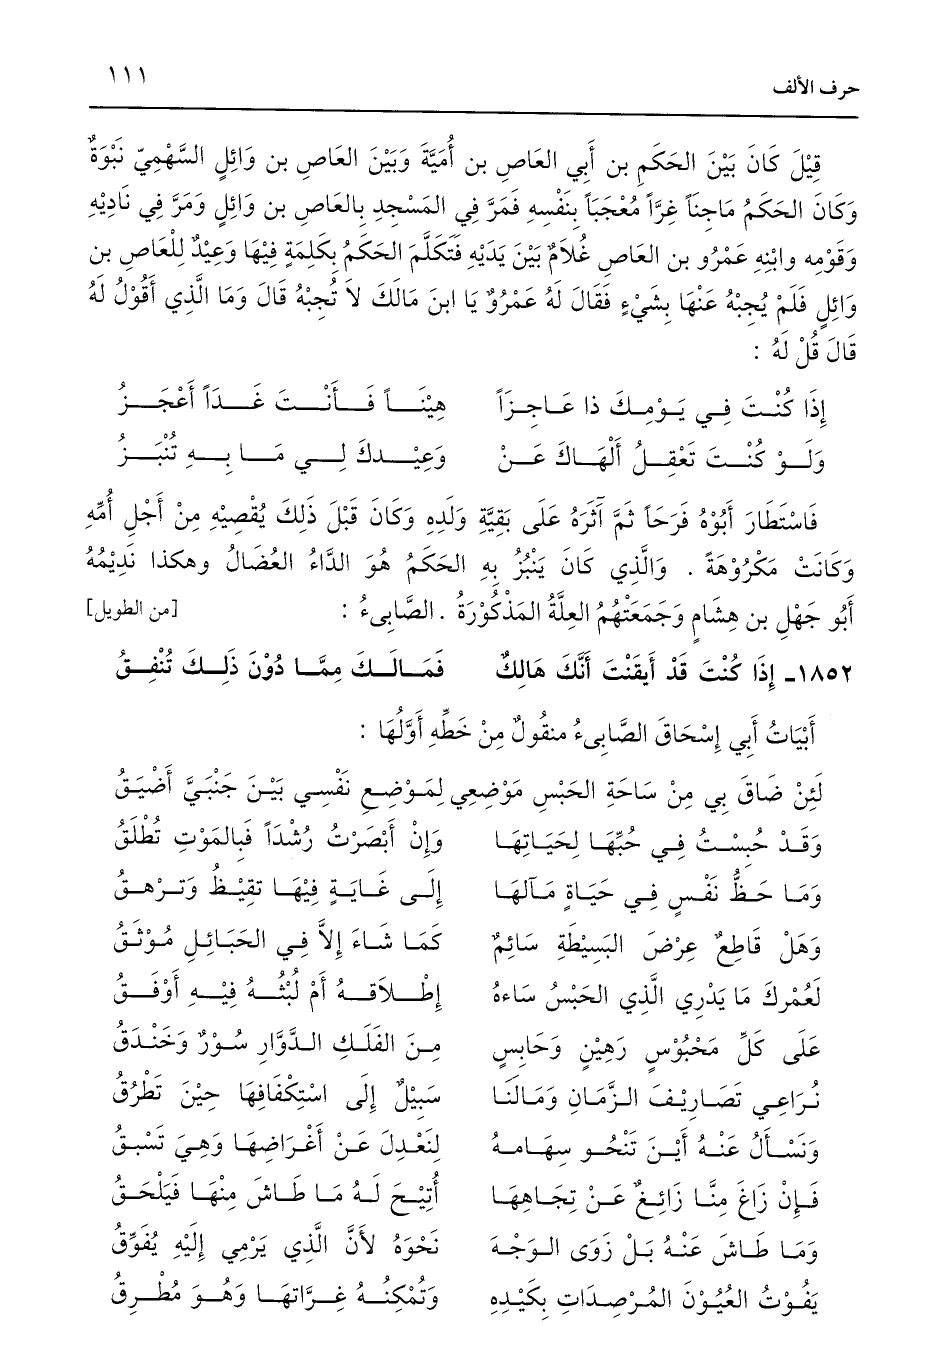 حرف الألف
١١١
قِيْلَ كَانَ بَيْنَ الحَكَمِ بن أَبِي العَاصِ بن أُمَيَّةَ وَبَيْنَ العَاصِ بن وَائِلٍ السَّهْمِيّ نَبْوَةٌ
وَكَانَ الحَكَمُ مَاجِناً غِرّاً مُعْجَباً بِنَفْسِهِ فَمَرَّ فِي المَسْجِدِ بِالعَاصِ بن وَائِلٍ وَمَرَّ فِي نَادِيْهِ
وَقَوْمِهِ وابْنِهِ عَمْرُو بن العَاصِ غُلَامٌ بَيْنَ يَدَيْهِ فَتَكَلَّمَ الحَكَمُ بِكَلِمَةٍ فِيْهَا وَعِيْدٌ لِلْعَاصِ بن
وَائِلٍ فَلَمْ يُجِبْهُ عَنْهَا بِشَيْءٍ فَقَالَ لَهُ عَمْرُوٌ يَا ابنَ مَالَكَ لاَ تُجِبْهُ قَالَ وَمَا الَّذِي أَقُوْلُ لَهُ
قَالَ قُلْ لَهُ :
إِذَا كُنْتَ فِي يَوْمِكَ ذا عَاجِزَاً هيْنَاً فَأَنْتَ غَدَاً أَعْجَزُ
وَلَوْ كُنْتَ تَعْقِلُ أَلْهَاكَ عَنْ وَعِيْدِكَ لِي مَا بِهِ تُنْبَزُ
فَاسْتَطَارَ أَبُوْهُ فَرَحَاً ثُمَّ آثَرَهُ عَلَى بَقِيَّةِ وَلَدِهِ وَكَانَ قَبْلَ ذَلِكَ يُقْصِيْهِ مِنْ أَجْلِ أُمِّهِ
وَكَانَتْ مَكْرُوْهَةً . وَالَّذِي كَانَ يَنْبُزُ بِهِ الحَكَمُ هُوَ الدَّاءُ العُضَالُ وهكذا نَدِيْمُهُ
أَبُو جَهْلِ بن هِشَامٍ وَجَمَعَتْهُمُ العِلَّةُ المَذْكُوْرَةُ . الصَّابِيءُ : [من الطويل]
١٨٥٢- إِذَا كُنْتَ قَدْ أَيقَنْتَ أَنَّكَ هَالِكٌ فَمَالَكَ مِمَّا دُوْنَ ذَلِكَ تُشْفِقُ
أَبْيَاتُ أَبِي إِسْحَاقَ الصَّابِيءُ منقُولٌ مِنْ خَطِّهِ أَوَّلُهَا :
لَئِنْ ضَاقَ بِي مِنْ سَاحَةِ الحَبْسِ مَوْضِعِي لَمَوْضِعِ نَفْسِي بَيْنَ جَنْبَيَّ أَضْيَقُ
وَقَدْ حُبِسْتُ فِي حُبِّهَا لِحَيَاتِهَا وَإِنْ أَبْصَرْتُ رُشْدَاً فَبِالمَوْتِ تُطْلَقُ
وَمَا حَظُّ نَفْسٍ فِي حَيَاةٍ مَآلهَا إِلَى غَايَةٍ فِيْهَا تفِيْظُ وَتَزْهَقُ
وَهَلْ قَاطِعٌ عِرْضَ البَسِيْطَةِ سَائِمٌ كَمَا شَاءَ إِلاَّ فِي الحَبَائِلِ مُوْثَقُ
لَعُمْرِكَ مَا يَدْرِي الَّذِي الحَبْسُ سَاءهُ إِطْلَاقهُ أَمْ لُبْثهُ فِيْهِ أَوْفَقُ
عَلَى كَلِّ مَحْبُوْسٍ رَهِيْنٍ وَحَابِسٍ مِنَ الفَلَكِ الدَّوَّارِ سُوْرٌ وَخَنْدَقُ
نُرَاعِي تَصَارِيْفَ الزَّمَانِ وَمَالَنَا سَبِيْلٌ إِلَى اسْتِكْفَافِهَا حِيْنَ تَطْرُقُ
وَنَسْأَلُ عَنْهُ أَيْنَ تَنْحُو سِهَامهُ لِنَعْدِلَ عَنْ أَغْرَاضِهَا وَهِيَ تَسْبِقُ
فَإِنْ زَاغَ مِنَّا زَائِغٌ عَنْ تِجَاهِهَا أُتِيْحَ لَهُ مَا طَاشَ مِنْهَا فَيَلْحَقُ
وَمَا طَاشَ عَنْهُ بَلْ زَوَى الوَجْهَ نَحْوَهُ لأَنَّ الَّذِي يَرْمِي إِلَيْهِ يُفَوِّقُ
يَفُوْتُ العُيُوْنَ المُرْصِدَاتِ بِكَيْدِهِ وَتُمْكِنُهُ غِرَّاتهَا وَهُوَ مُطْرِقُ